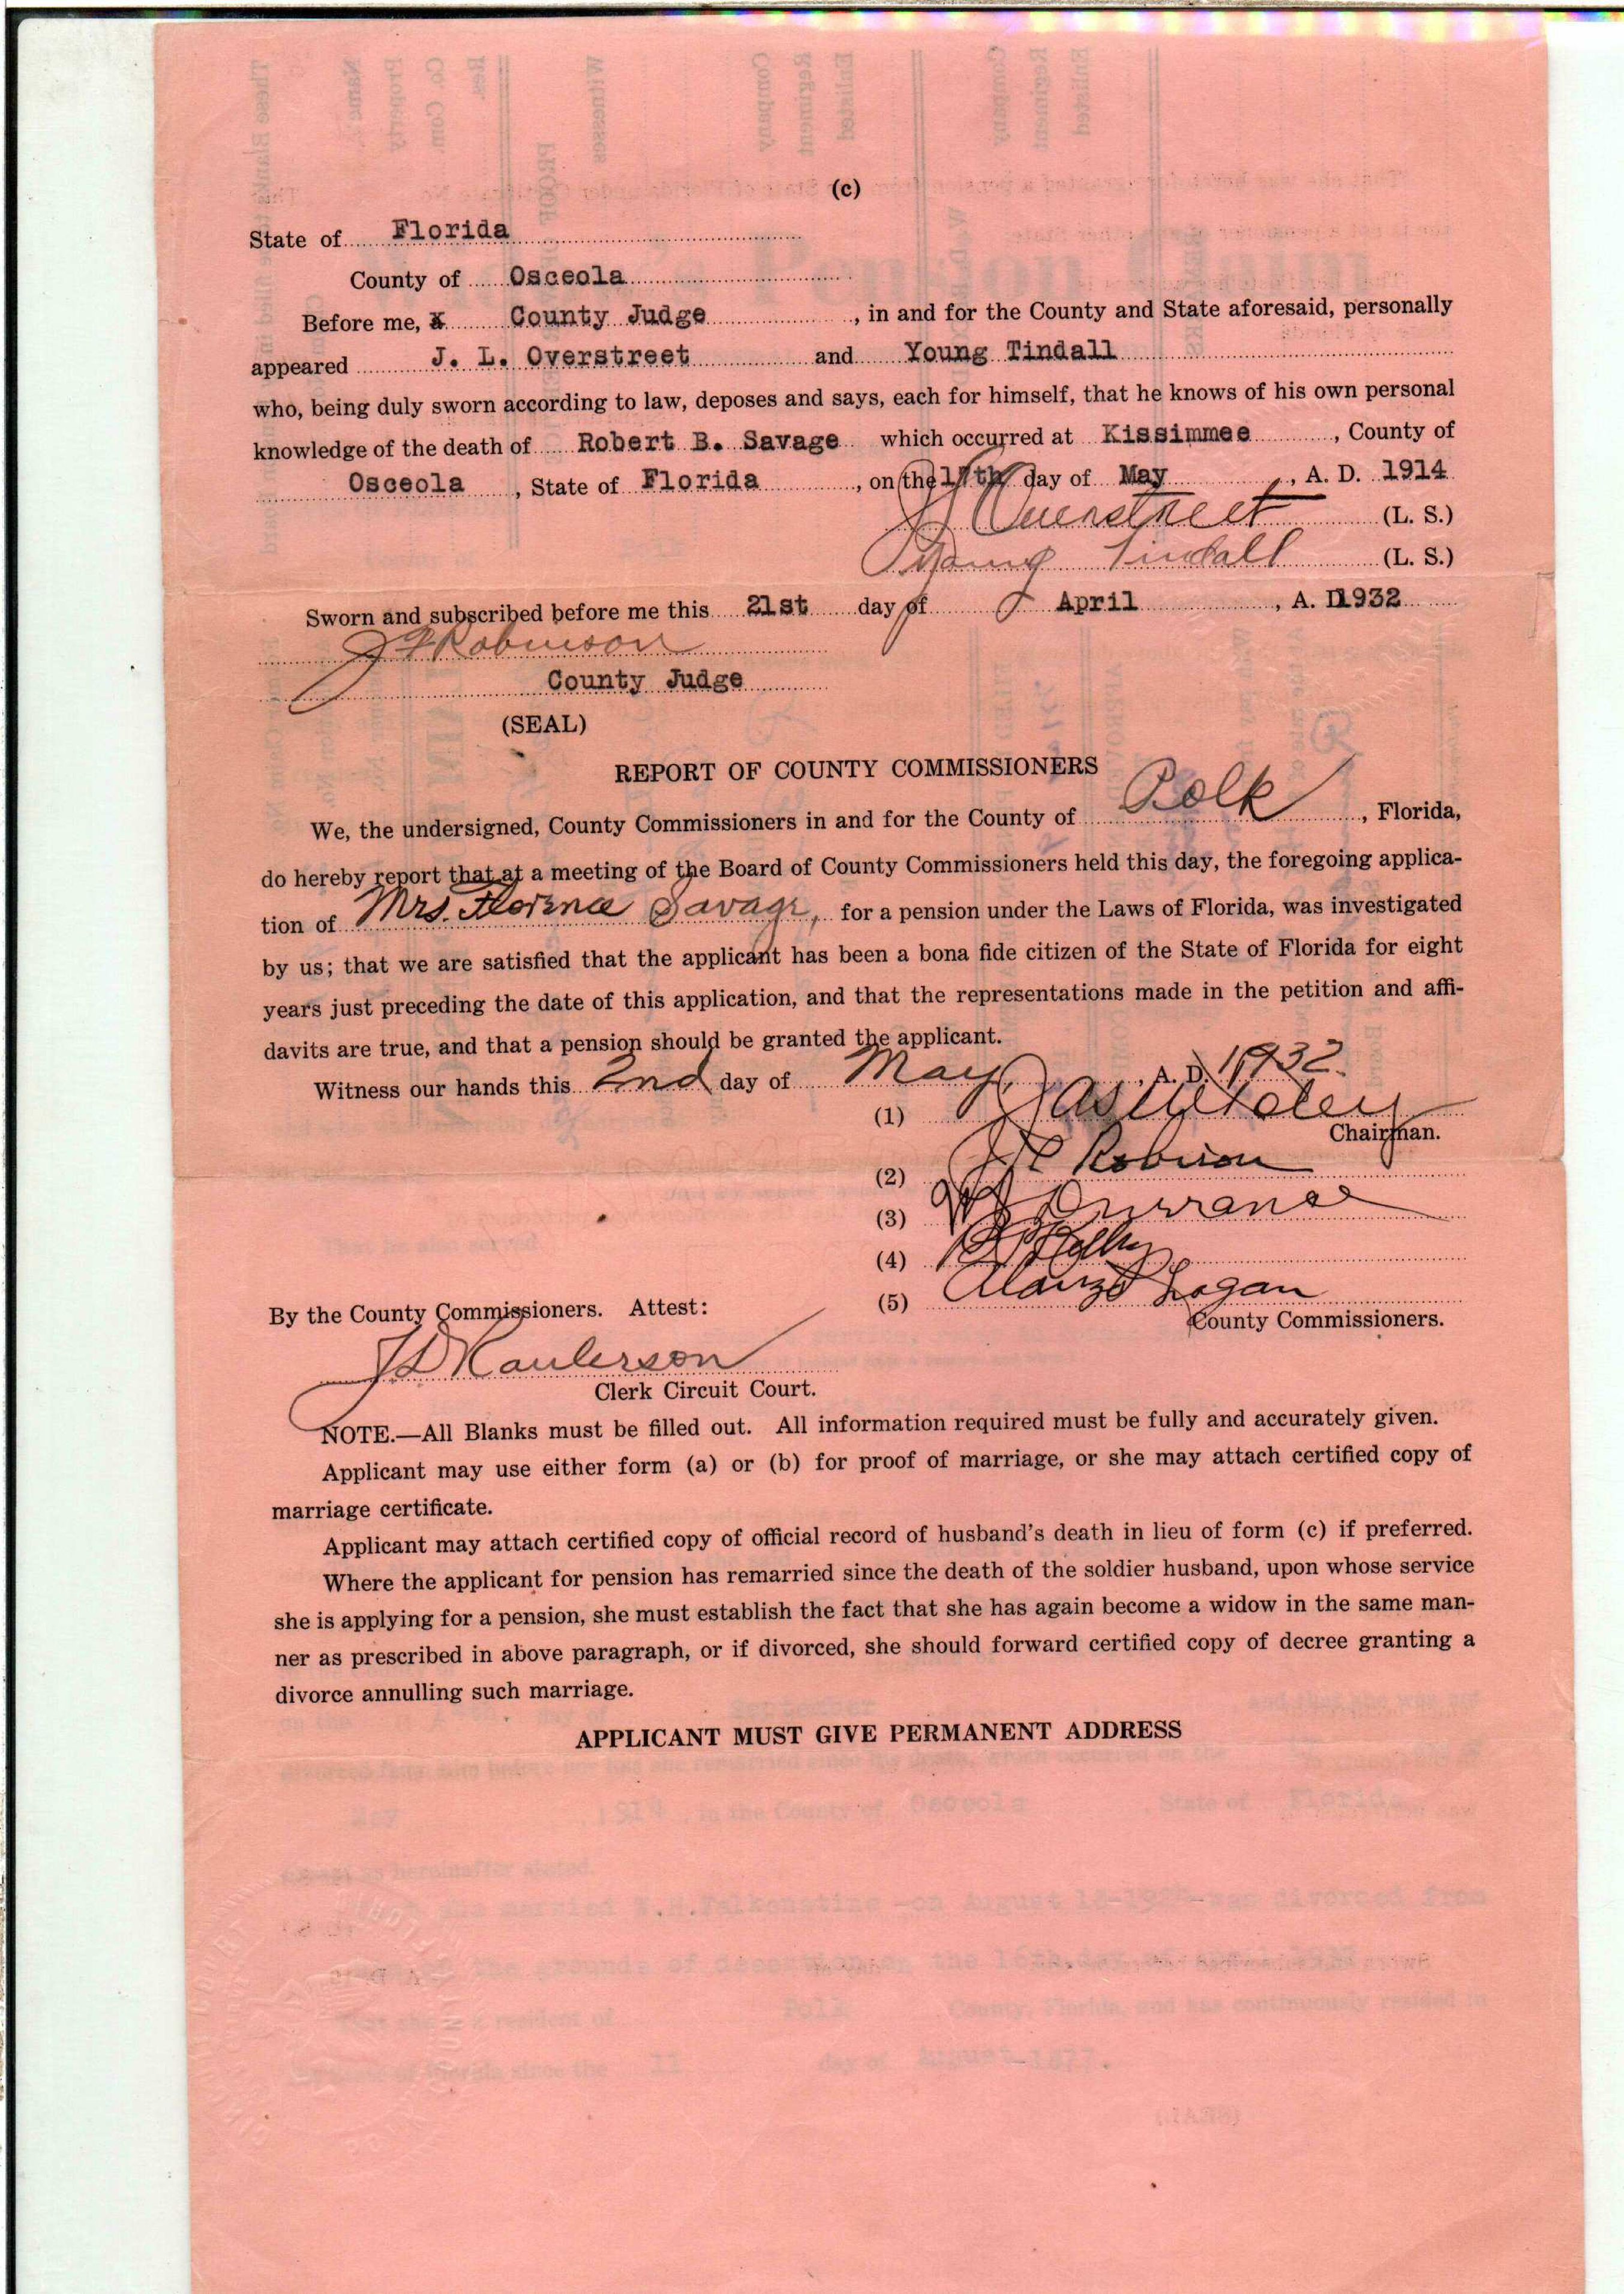 (c)
State of Florida
County of Osceola
Before me, X County Judge, in and for the County and State aforesaid, personally
appeared J. L. Overstreet and Young Tindall
who, being duly sworn according to law, deposes and says, each for himself, that he knows of his own personal
knowledge of the death of Robert B. Savage which occurred at Kissimmee, County of
Osceola, State of Florida, on the 17th day of May, A. D. 1914
J L Overstreet (L. S.)
Young Tindall (L. S.)
Sworn and subscribed before me this 21st day of April, A. D1932
Robinson
County Judge
(SEAL)
REPORT OF COUNTY COMMISSIONERS
We, the undersigned, County Commissioners in and for the County of Polk, Florida,
do hereby report that at a meeting of the Board of County Commissioners held this day, the foregoing applica-
tion of Mrs. Florence Savage, for a pension under the Laws of Florida, was investigated
by us; that we are satisfied that the applicant has been a bona fide citizen of the State of Florida for eight
years just preceding the date of this application, and that the representations made in the petition and affi-
davits are true, and that a pension should be granted the applicant.
Witness our hands this 2nd day of May, A. D. 1932.
(1)
Chairman.
(2) Robison
(3) Durrance
(4)
(5) Alonzo Logan
County Commissioners.
By the County Commissioners. Attest:
J D Raulerson
Clerk Circuit Court.
NOTE.—All Blanks must be filled out. All information required must be fully and accurately given.
Applicant may use either form (a) or (b) for proof of marriage, or she may attach certified copy of
marriage certificate.
Applicant may attach certified copy of official record of husband's death in lieu of form (c) if preferred.
Where the applicant for pension has remarried since the death of the soldier husband, upon whose service
she is applying for a pension, she must establish the fact that she has again become a widow in the same man-
ner as prescribed in above paragraph, or if divorced, she should forward certified copy of decree granting a
divorce annulling such marriage.
APPLICANT MUST GIVE PERMANENT ADDRESS